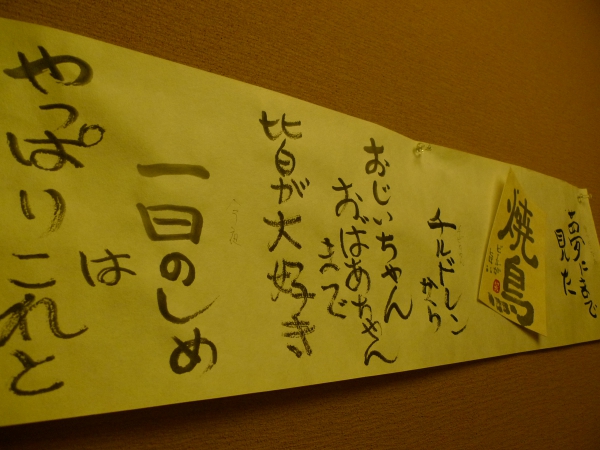 焼鳥
チルドレン
から
おじいちゃん
おばあちゃん
まで
皆が大好き
一日のしめ
は
やっぱりこれと